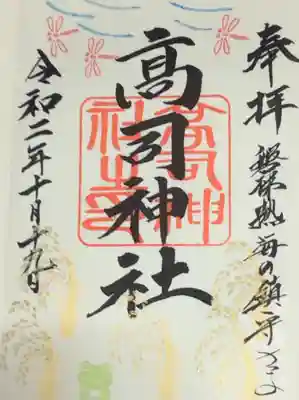 奉拝
磐梯熱海の鎮守
高司神社
高司神社之印
令和二年十月十九日